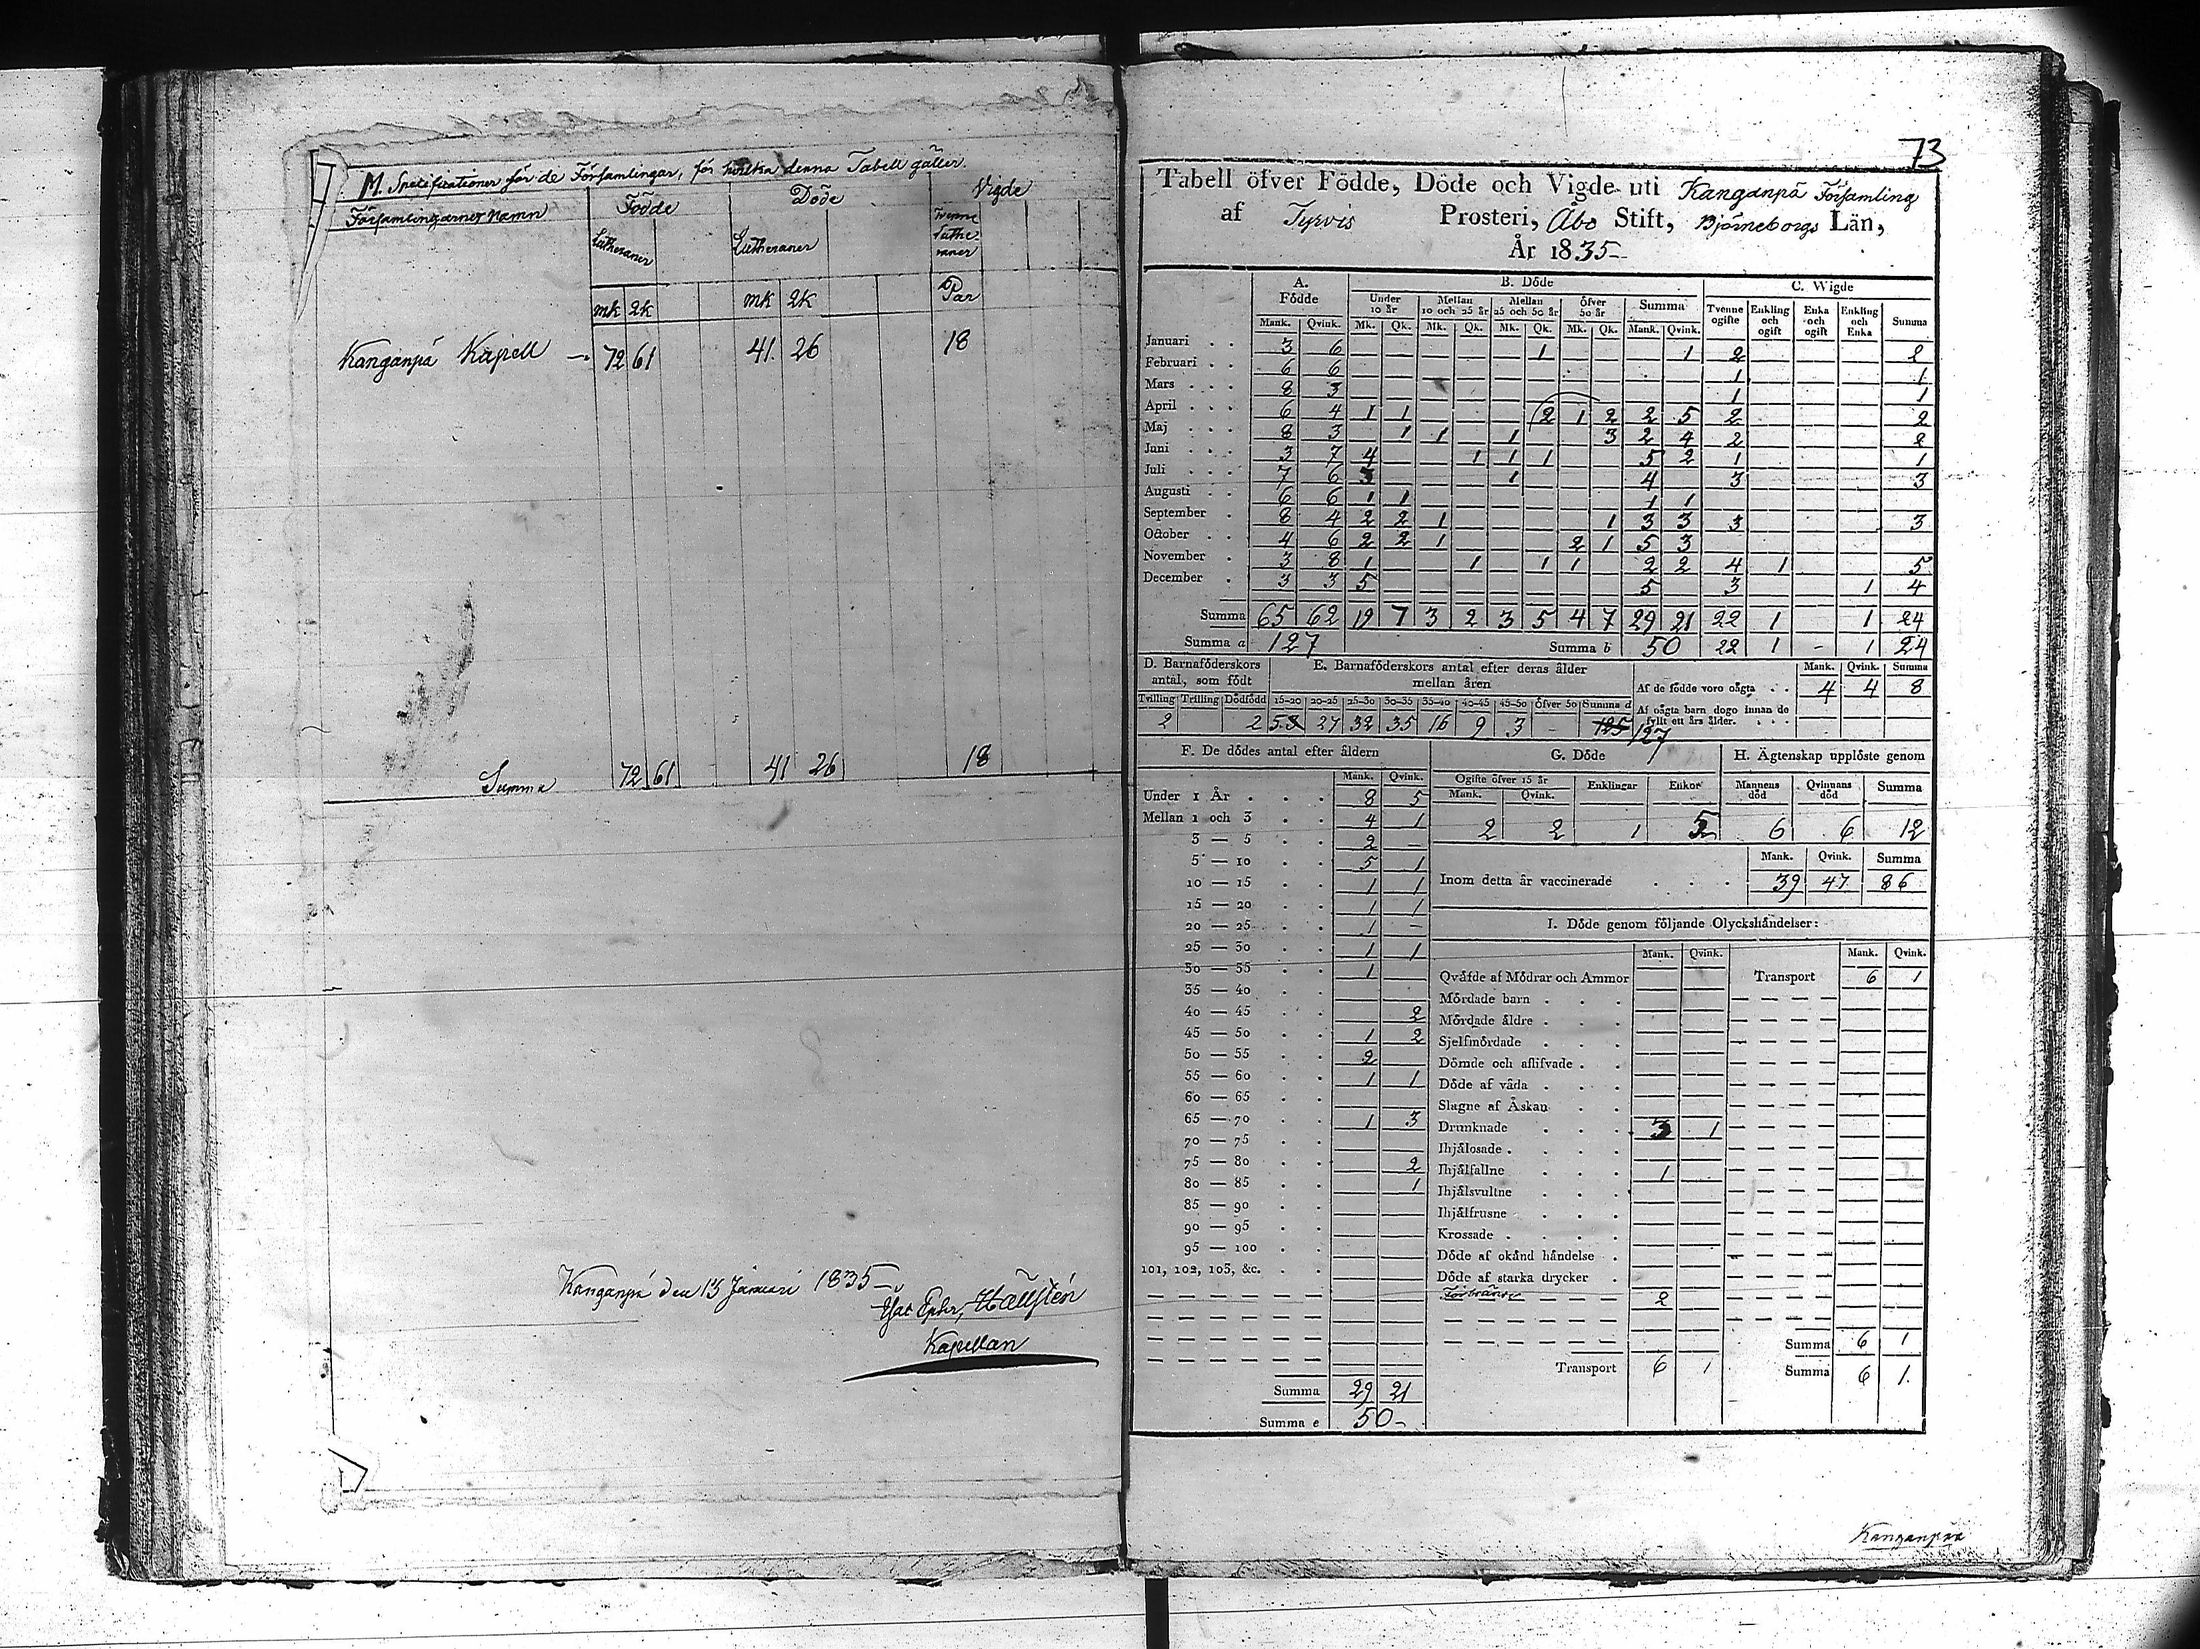 M. Specificationer för de Församlingar, för hvilka denna Tabell gäller.
Församlingarnes namn Födde Döde Vigde
Lutheraner Lutheraner Tvenne Lutheraner
mk 2k mk 2k Par
Kanganpä Kapell — 72 61 41. 26 18
Summa 72 61 41 26 18
Kanganpä den 13 Januari 1835
Hällstén
Kapellan
73
Tabell öfver Födde, Döde och Vigde uti Kanganpä Församling
af Tyrvis Prosteri, Åbo Stift, Björneborgs Län,
År 1835
A. Födde B. Döde C. Wigde
Under 10 år Mellan 10 och 25 år Mellan 25 och 50 år Öfver 50 år Summa Tvenne ogifte Enkling och ogift Enka och ogift Enkling och Enka Summa
Mank. Qvink. Mk. Qk. Mk. Qk. Mk. Qk. Mk. Qk. Mank. Qvink.
Januari . . 3 6 — — — — — 1 — — — 1 2 — — — 2
Februari . . 6 6 — — — — — — — — — — 1 — — — 1
Mars . . . 8 3 — — — — — — — — — — 1 — — — 1
April . . . 6 4 1 1 — — — 2 1 2 2 5 2 — — — 2
Maj . . . 8 3 — 1 1 — 1 — — 3 2 4 2 — — — 2
Juni . . . 3 7 4 — — 1 1 1 — — 5 2 1 — — — 1
Juli . . . 7 6 3 — — — 1 — — — 4 — 3 — — — 3
Augusti . . 6 6 1 1 — — — — — — 1 1 — — — — —
September . 8 4 2 2 1 — — — — 1 3 3 3 — — — 3
October . . 4 6 2 2 1 — — — 2 1 5 3 — — — — —
November . 3 8 1 — — 1 — 1 1 — 2 2 4 1 — — 5
December . 3 3 5 — — — — — — — 5 — 3 — — 1 4
Summa 65 62 19 7 3 2 3 5 4 7 29 21 22 1 — 1 24
Summa a 127 Summa b 50 22 1 - 1 24
D. Barnaföderskors antal, som födt E. Barnaföderskors antal efter deras ålder mellan åren Mank. Qvink. Summa
Af de födde voro oägta . . 4 4 8
Tvilling Trilling Dödfödd 15-20 20-25 25-30 30-35 35-40 40-45 45-50 öfver 50 Summa d Af oägta barn dogo innan de fyllt ett års ålder. . . . — — —
2 2 5 27 32 35 16 9 3 - 125 127
F. De dödes antal efter åldern G. Döde H. Ägtenskap upplöste genom
Mank. Qvink. Ogifte öfver 15 år Mank. Qvink. Enklingar Enkor Mannens död Qvinnans död Summa
Under 1 År . . . 8 5
Mellan 1 och 3 . . 4 1 2 2 1 5 6 6 12
3 — 5 . . 2 —
5 — 10 . . 5 1 Mank. Qvink. Summa
10 — 15 . . 1 1 Inom detta år vaccinerade . . . 39 47 86
15 — 20 . . 1 1
20 — 25 . . 1 — I. Döde genom följande Olyckshändelser:
25 — 30 . . 1 1 Mank. Qvink. Mank. Qvink.
30 — 35 . . 1 — Qväfde af Mödrar och Ammor Transport 6 1
35 — 40 . . Mördade barn . . .
40 — 45 . . 2 Mördade äldre . . .
45 — 50 . . 1 2 Sjelfmördade . . .
50 — 55 . . 2 Dömde och aflifvade . .
55 — 60 . . 1 1 Döde af våda . . .
60 — 65 . . Slagne af Åskan . .
65 — 70 . . 1 3 Drunknade . . . 3 1
70 — 75 . . Ihjälosade . . . .
75 — 80 . . 2 Ihjälfallne . . . 1
80 — 85 . . 1 Ihjälsvultne . . .
85 — 90 . . Ihjälfrusne . . .
90 — 95 . . Krossade . . . .
95 — 100 . . Döde af okänd händelse .
101, 102, 103, &c. . . Döde af starka drycker .
Förbrände 2
Summa 6 1
Transport 6 1 Summa 6 1.
Summa 29 21
Summa e 50-
Kanganpää